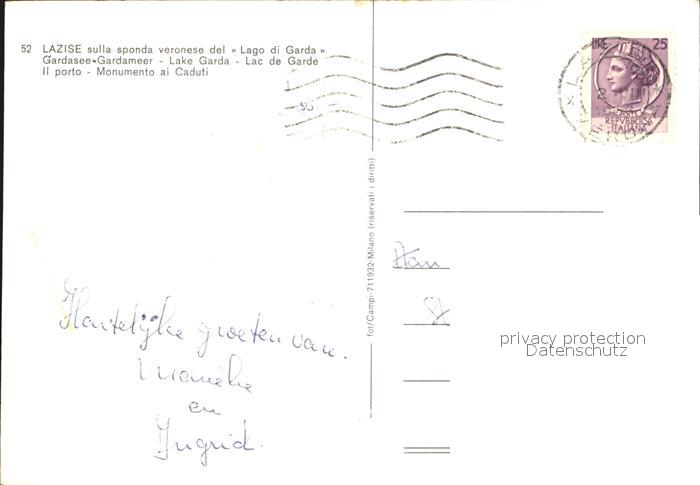 52 LAZISE sulla sponda veronese del « Lago di Garda »
Gardasee-Gardameer - Lake Garda - Lac de Garde
Il porto - Monumento ai Caduti
LIRE 25
POSTE
REPVBBLICA
ITALIANA
VERONA
fot/Campi-711932-Milano (riservati i diritti)
privacy protection
Datenschutz
Hartelijke groeten van.
en
Ingrid.